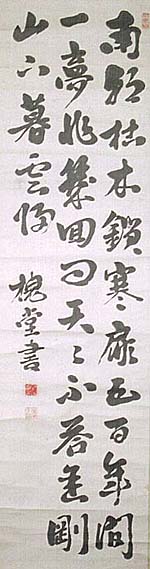 南朝枯木鎖寒扉五百年間
一夢非幾回問天々不答金剛
山下暮雲歸
槐堂書